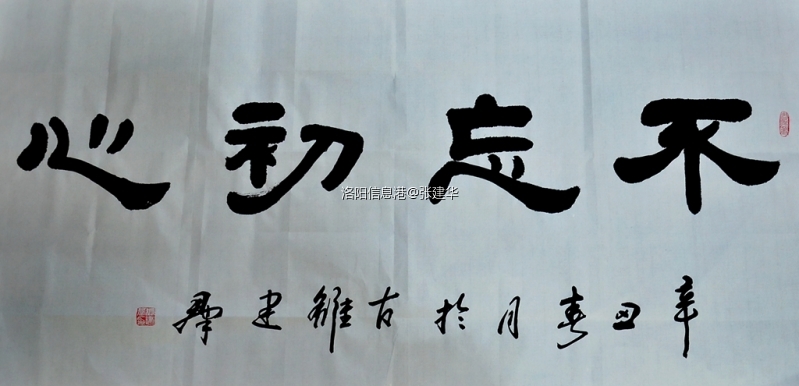 不忘初心
洛阳信息港@张建华
辛丑春月於古雒建華